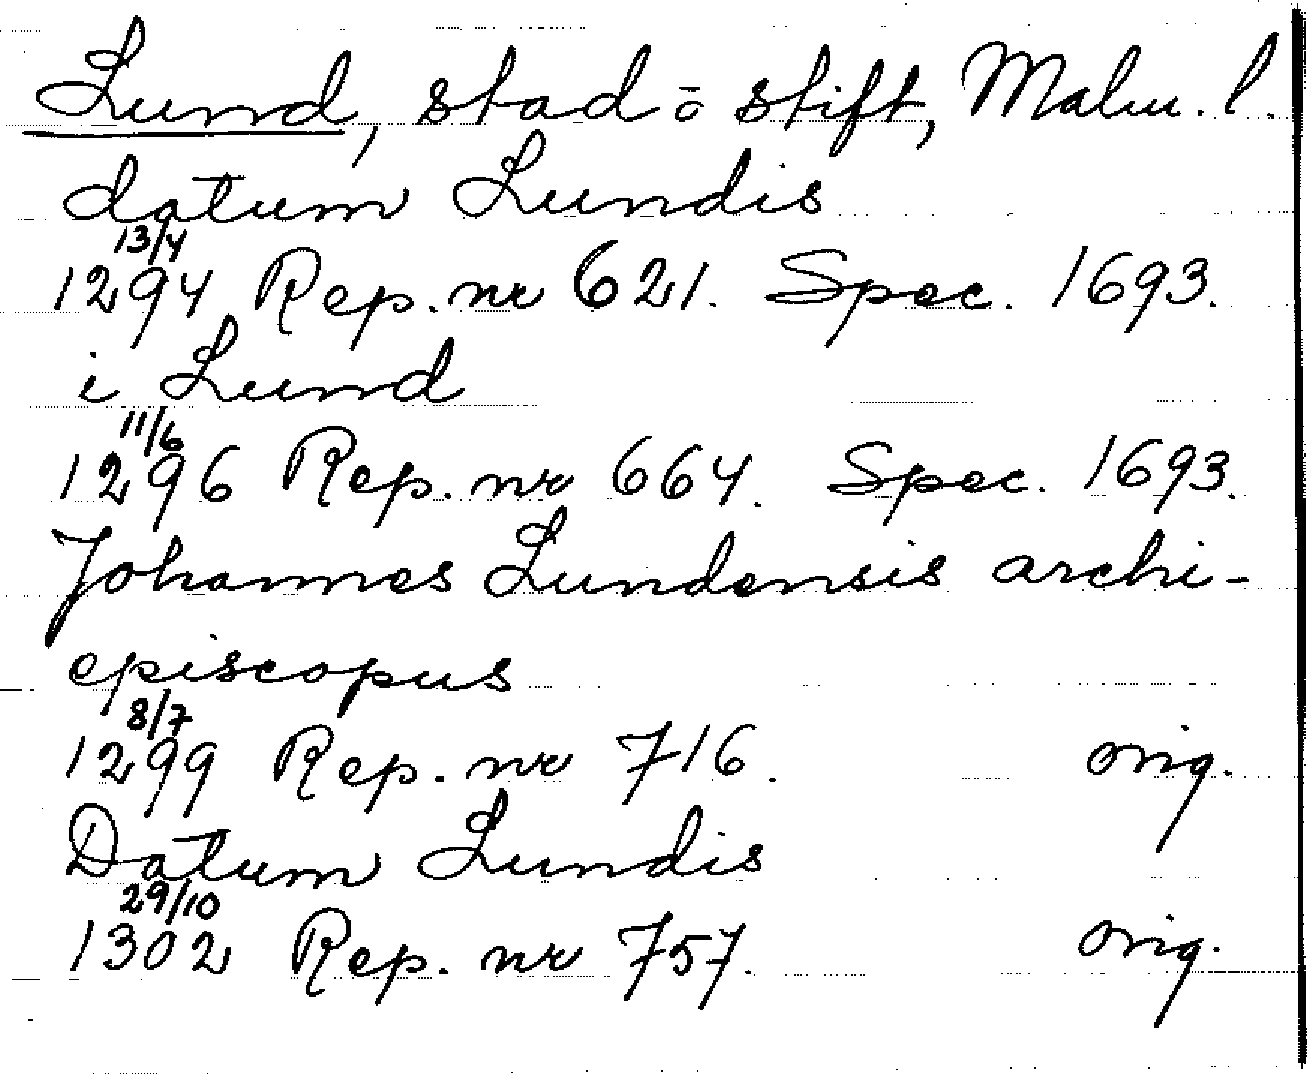 Lund, stad o stift, Malm. l.
datum Lundis
13/4
1294 Rep. nr 621. Spec. 1693.
i Lund
11/6
1296 Rep. nr 664. Spec. 1693.
Johannes Lundensis archi-
episcopus
8/7
1299 Rep. nr 716. orig.
Datum Lundis
29/10
1302 Rep. nr 757. orig.